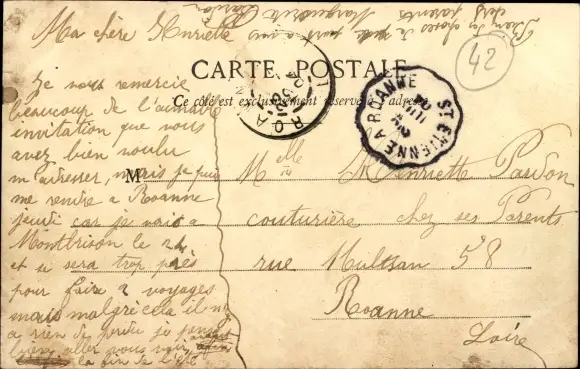 Bien des choses de ma part à vos
chers parents Marguerite
Ma chère Henriette
42
CARTE POSTALE
Ce côté est exclusivement réservé à l'adresse
ROANNE
ST ETIENNE A ROANNE
Je vous remercie
beaucoup de l'aimable
invitation que vous
avez bien voulu
m'adresser, mais je puis
me rendre a Roanne
jeudi car je vais a
Montbrison le 24
et si sera trop près
pour faire 2 voyages
mais malgré cela il n'y
a rien de perdu je pense
bien aller vous voir
la fin de l'été
M
Melle Henriette Pardon
couturière chez ses Parents
rue Mulsan 58
Roanne
Loire